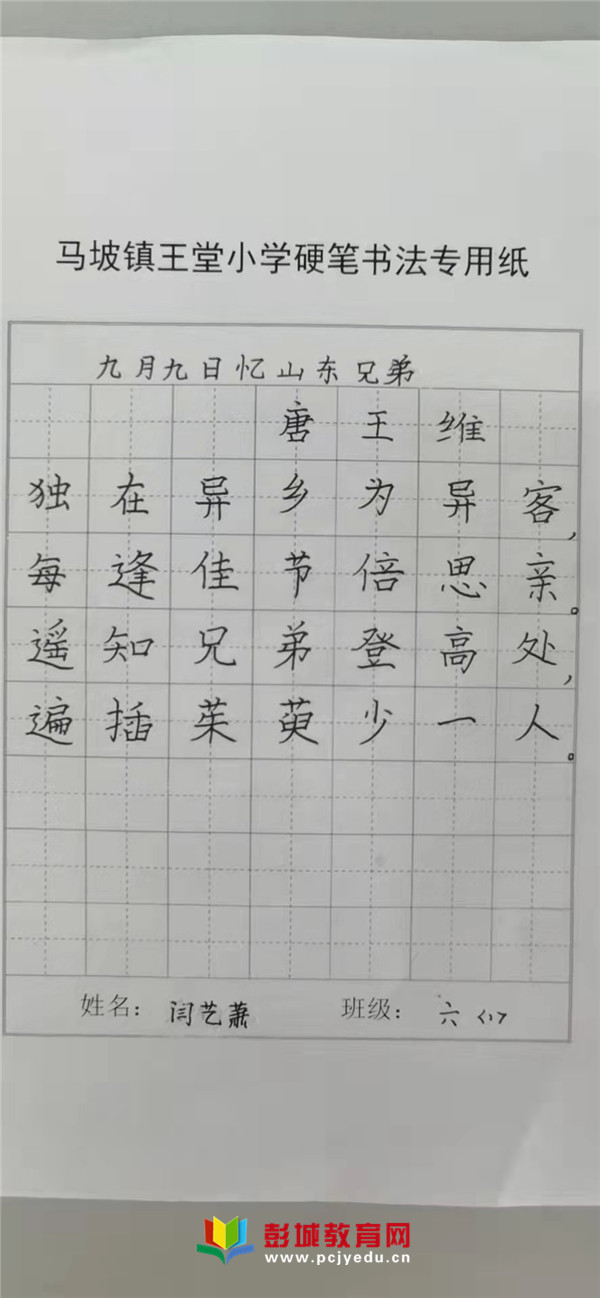 马坡镇王堂小学硬笔书法专用纸
九月九日忆山东兄弟
唐王维
独在异乡为异客，
每逢佳节倍思亲。
遥知兄弟登高处，
遍插茱萸少一人。
姓名： 闫艺萧 班级： 六<1>
彭城教育网
www.pcjyedu.cn